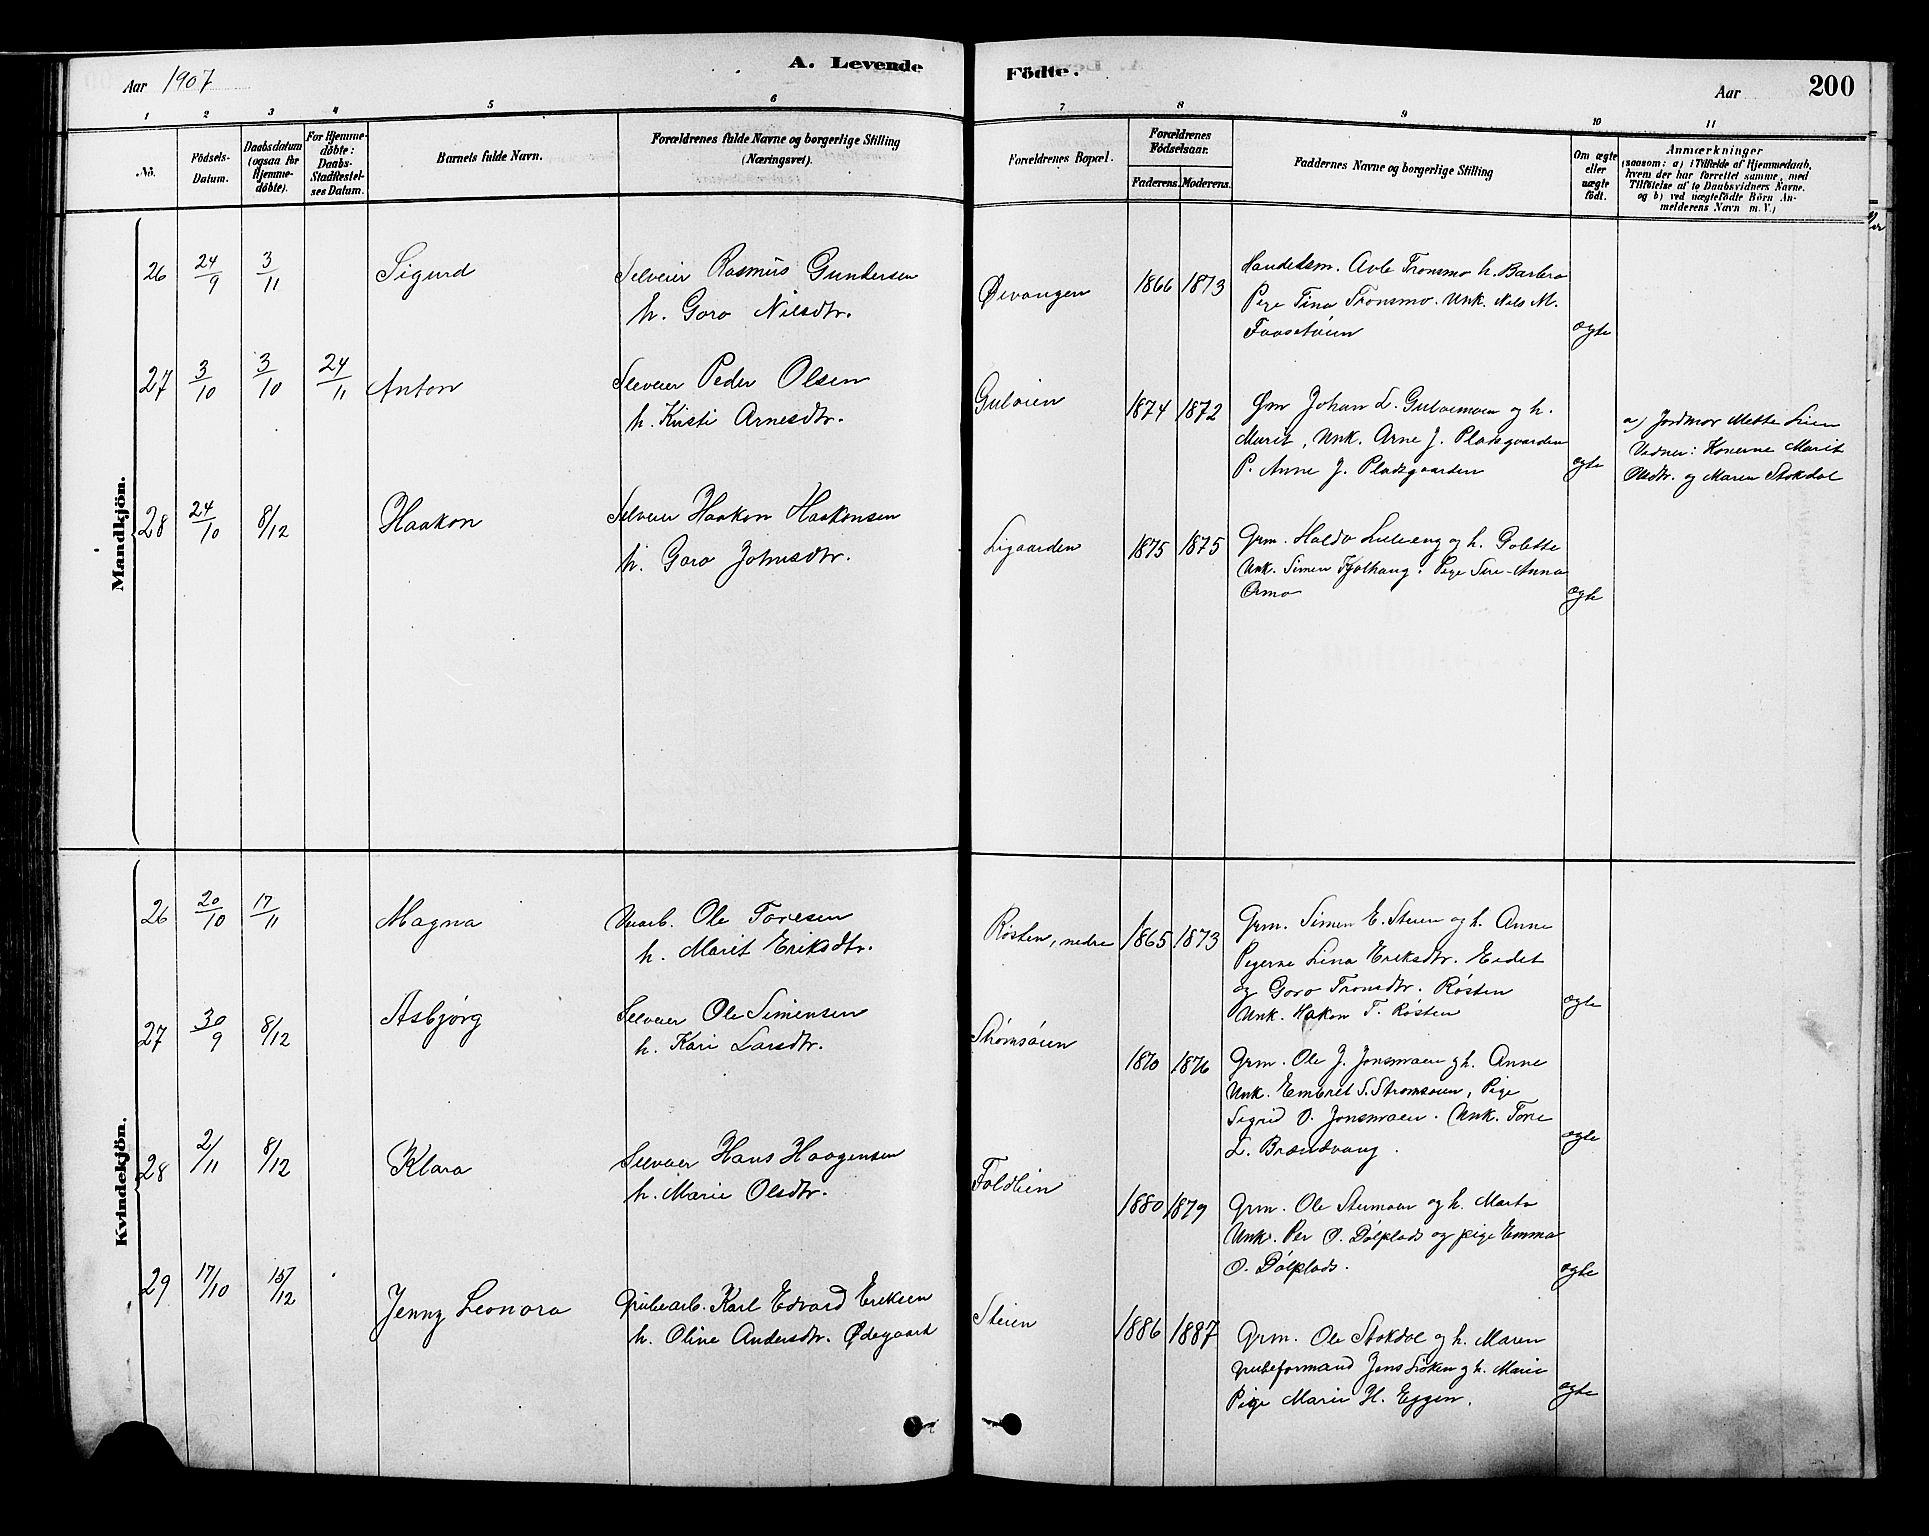 Aar 1907
A. Levende
Födte.
Aar
200
1 2 3 4 5 6 7 8 9 10 11
No.
Födsels-
Datum.
Daabsdatum
(ogsaa for
Hjemme-
döbte).
For Hjemme-
döbte:
Daabs-
Stadfæstel-
ses Datum.
Barnets fulde Navn.
Forældrenes fulde Navne og borgerlige Stilling
(Næringsvei).
Forældrenes Bopæl.
Forældrenes
Födselsaar.
Faderens. Moderens.
Faddernes Navne og borgerlige Stilling
Om ægte
eller
uægte
födt.
Anmærkninger
(saasom: a) i Tilfælde af Hjemmedaab,
hvem der har forrettet samme, med
Tilföielse af to Daabsvidners Navne.
og b) ved uægtefödte Börn An-
melderens Navn m. V.)
Mandkjön.
26 24/9 3/11 Sigurd
Selveier Rasmus Gundersen
h. Goro Nilsdtr.
Øivangen 1866 1873
Handelsm. Avle Tronsmo h. Barbro
Pige Tina Tronsmo. Unk. Nils M.
Faasetøien
ægte
27 3/10 3/10 24/11 Anton
Selveier Peder Olsen
h. Kirsti Arnesdtr.
Guløien 1874 1872
Gm Johan L. Guløimoen og h.
Marit, Unk. Arne J. Pladsgaarden
P. Anne J. Pladsgaarden
ægte
a) Jordmor Mette Lien
Vidner: Konerne Marit
Olsdtr. og Maren Stokdal
28 24/10 8/12 Haakon
Selveier Haakon Haakonsen
h. Goro Johnsdtr.
Ligaarden 1875 1875
Grm. Haldo Lilleeng og h. Golette
Unk. Simen Fjelhaug. Pige Siri-Anna
Ormo
ægte
Kvindekjön.
26 20/10 17/11 Magna
Veiarb. Ole Toresen
h. Marit Eriksdtr.
Røsten, nedre 1865 1873
Grm. Simen E. Steien og h. Anne
Pigerne Lina Eriksdtr. Eidet
og Goro Tronsdtr. Røsten
Unk. Hakon T. Røsten
ægte
27 30/9 8/12 Asbjørg
Selveier Ole Simensen
h. Kari Larsdtr.
Strømsøien 1870 1876
Grm. Ole J. Jonsmoen og h. Anne
Unk. Embret S. Strømsøien, Pige
Sigrid O. Jonsmoen. Unk. Tore
L. Brændvang.
ægte
28 2/11 8/12 Klara
Selveier Hans Haagensen
h. Marie Olsdtr.
Foldlien 1880 1879
Grm. Ole Steimoen og h. Marta
Unk. Per O. Dølplads og pige Emma
O. Dølplads.
ægte
29 17/10 15/12 Jenny Leonora
Grubearb. Karl Edvard Eriksen
h. Oline Andersdtr. Ødegaard
Steien 1886 1887
Grm. Ole Stokdal og h. Maren
Grubeformand Jens Løken og h. Marie
Pige Marie H. Eggen.
ægte